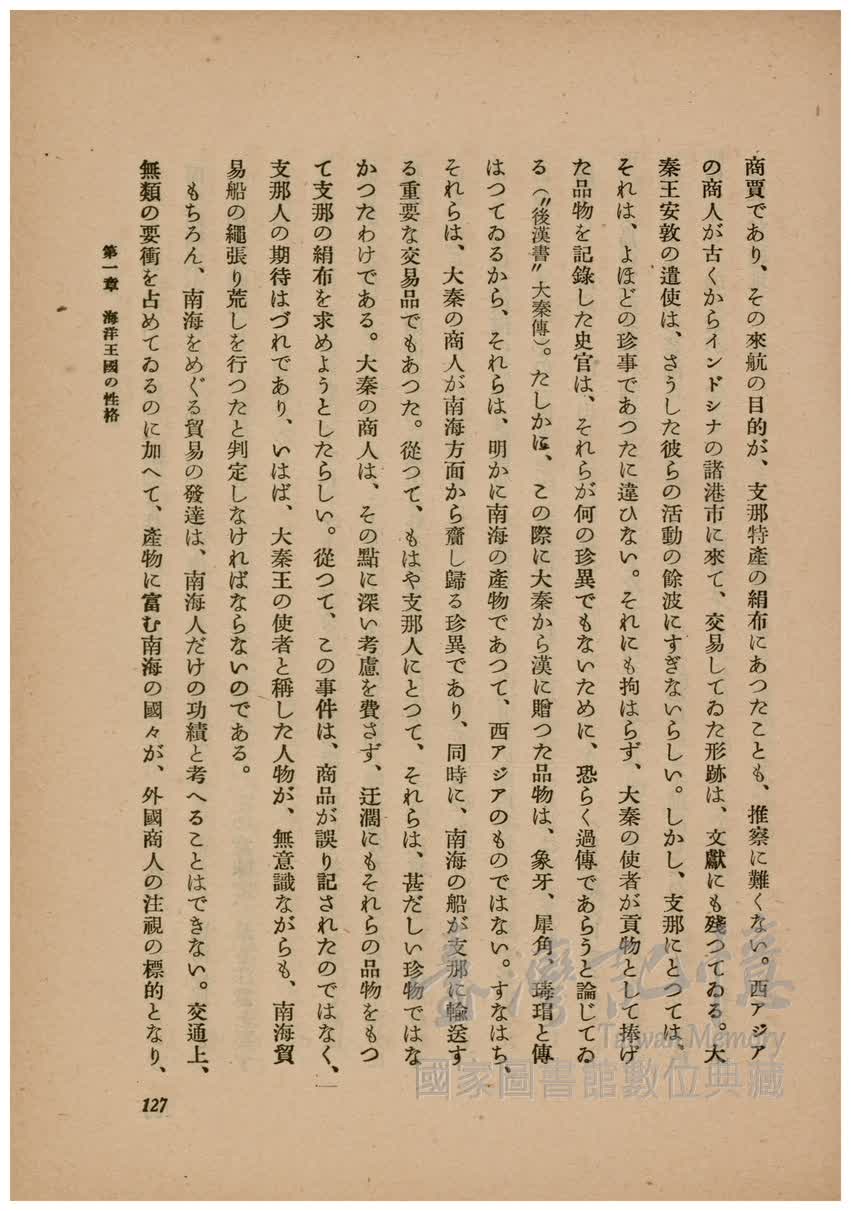 商賈であり、その來航の目的が、支那特產の絹布にあつたことも、推察に難くない。西アジア
の商人が古くからインドシナの諸港市に來て、交易してゐた形跡は、文獻にも殘つてゐる。大
秦王安敦の遣使は、さうした彼らの活動の餘波にすぎないらしい。しかし、支那にとつては、
それは、よほどの珍事であつたに違ひない。それにも拘はらず、大秦の使者が貢物として捧げ
た品物を記錄した史官は、それらが何の珍異でもないために、恐らく過傳であらうと論じてゐ
る（〝後漢書〟大秦傳）。たしかに、この際に大秦から漢に贈つた品物は、象牙、犀角、瑇瑁と傳
はつてゐるから、それらは、明かに南海の產物であつて、西アジアのものではない。すなはち、
それらは、大秦の商人が南海方面から齎し歸る珍異であり、同時に、南海の船が支那に輸送す
る重要な交易品でもあつた。從つて、もはや支那人にとつて、それらは、甚だしい珍物ではな
かつたわけである。大秦の商人は、その點に深い考慮を費さず、迂濶にもそれらの品物をもつ
て支那の絹布を求めようとしたらしい。從つて、この事件は、商品が誤り記されたのではなく、
支那人の期待はづれであり、いはば、大秦王の使者と稱した人物が、無意識ながらも、南海貿
易船の繩張り荒しを行つたと判定しなければならないのである。
もちろん、南海をめぐる貿易の發達は、南海人だけの功績と考へることはできない。交通上、
無類の要衝を占めてゐるのに加へて、產物に富む南海の國々が、外國商人の注視の標的となり、
第一章 海洋王國の性格
127
臺灣記憶
Taiwan Memory
國家圖書館數位典藏